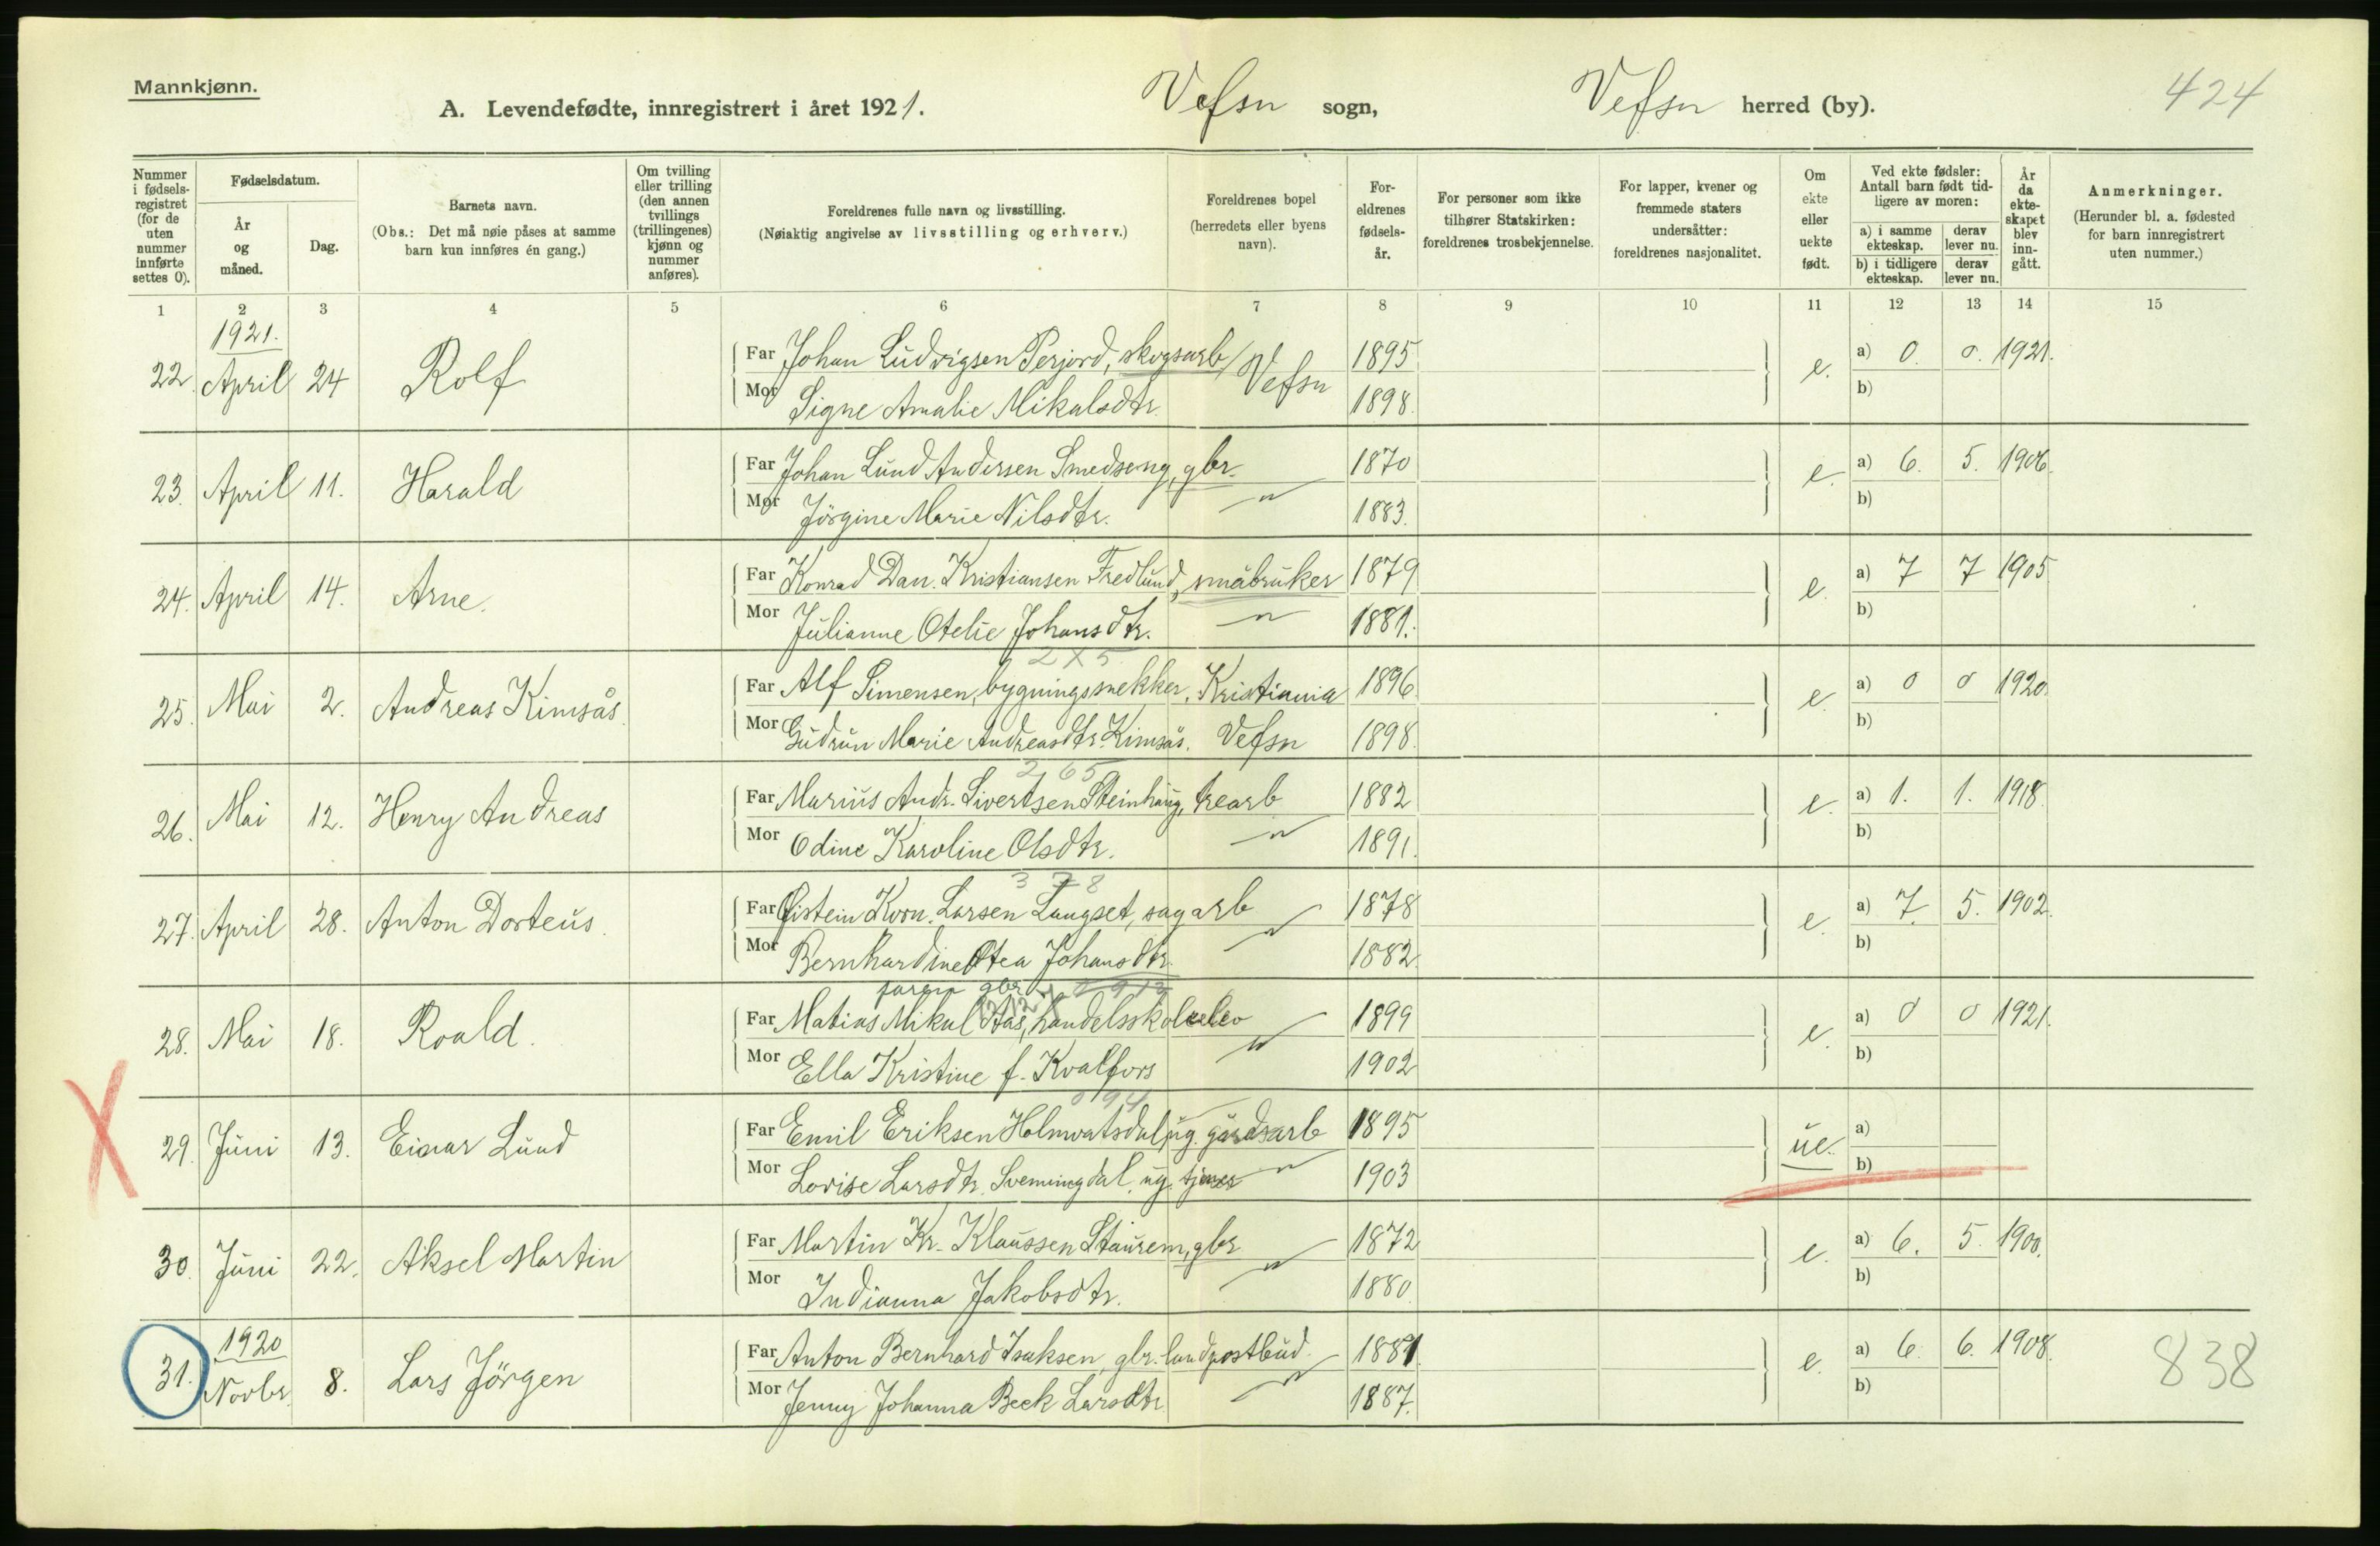 Mannkjønn.
A. Levendefødte, innregistrert i året 1921. Vefsn sogn, Vefsn herred (by). 424
Nummer i fødsels-registret (for de uten nummer innførte settes 0).
Fødselsdatum.
År og måned.
Dag.
Barnets navn.
(Obs.: Det må nøie påses at samme barn kun innføres én gang.)
Om tvilling eller trilling (den annen tvillings (trillingenes) kjønn og nummer anføres).
Foreldrenes fulle navn og livsstilling.
(Nøiaktig angivelse av livsstilling og erhverv.)
Foreldrenes bopel (herredets eller byens navn).
For-eldrenes fødsels-år.
For personer som ikke tilhører Statskirken: foreldrenes trosbekjennelse.
For lapper, kvener og fremmede staters undersåtter: foreldrenes nasjonalitet.
Om ekte eller uekte født.
Ved ekte fødsler: Antall barn født tid-ligere av moren:
a) i samme ekteskap. derav lever nu.
b) i tidligere ekteskap. derav lever nu.
År da ekte-skapet blev inn-gått.
Anmerkninger.
(Herunder bl. a. fødested for barn innregistrert uten nummer.)
1 2 3 4 5 6 7 8 9 10 11 12 13 14 15
1921.
22 April 24 Rolf Far Johan Ludvigsen Perjord, skogsarb Vefsn 1895 e. a) 0. 0. 1921.
Mor Signe Amalie Mikalsdtr. 1898. b)
23. April 11. Harald Far Johan Lund Andersen Smedseng, gbr. 1870 e. a) 6. 5. 1906.
Mor Jörgine Marie Nilsdtr. " 1883. b)
24. April 14. Arne. Far Konrad Dan. Kristiansen Fredlund, småbruker 1879 e. a) 7 7 1905
Mor Julianne Otelie Johansdtr. " 1881. b)
2 X 5
25. Mai 2. Andreas Kimsås. Far Alf Simensen, bygningssnekker, Kristiania 1896 e. a) 0 0 1920.
Mor Gudrun Marie Andreasdtr. Kimsås. Vefsn 1898. b)
2 65
26. Mai 12. Henry Andreas Far Marius Andr. Sivertsen Steinhaug, trearb 1882 e. a) 1. 1. 1918.
Mor Odine Karoline Olsdtr. " 1891. b)
3 7 8
27. April 28. Anton Dorteus. Far Øistein Korn. Larsen Langset, sagarb 1878 e. a) 7. 5. 1902.
Mor Bernhardine Otea Johansdtr. " 1882. b)
farfar gbr
28. Mai 18. Roald. Far Matias Mikal Aas, handelsskoleelev 1899 e. a) 0 0 1921.
Mor Ella Kristine f. Kvalfors " 1902 b)
0 94
29. Juni 13. Einar Lund Far Emil Eriksen Holmvatsdal, ug. gårdsarb 1895 ue. a)
Mor Lovise Larsdtr. Svenningdal, ug. tjener " 1903 b)
30. Juni 22. Aksel Martin Far Martin Kr. Klaussen Staurem, gbr 1872 e. a) 6. 5. 1900.
Mor Indianna Jakobsdtr. " 1880. b)
1920
31. Novbr. 8. Lars Jörgen Far Anton Bernhard Isaksen, gbr. landpostbud. 1881. e. a) 6. 6. 1908. 838
Mor Jenny Johanna Beck Larsdtr. " 1887. b)